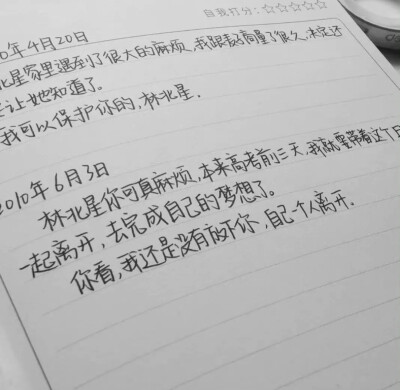 自我打分:☆☆☆☆☆
0年4月20日
北星家里遇到了很大的麻烦,我跟赵商量了很久,决定还
让她知道了。
我可以保护你的,林北星.
2010年6月3日
林北星你可真麻烦,本来高考前三天,我就要带着这个日
一起离开,去完成自己的梦想了。
你看,我还是没有放下你,自己一个人离开.